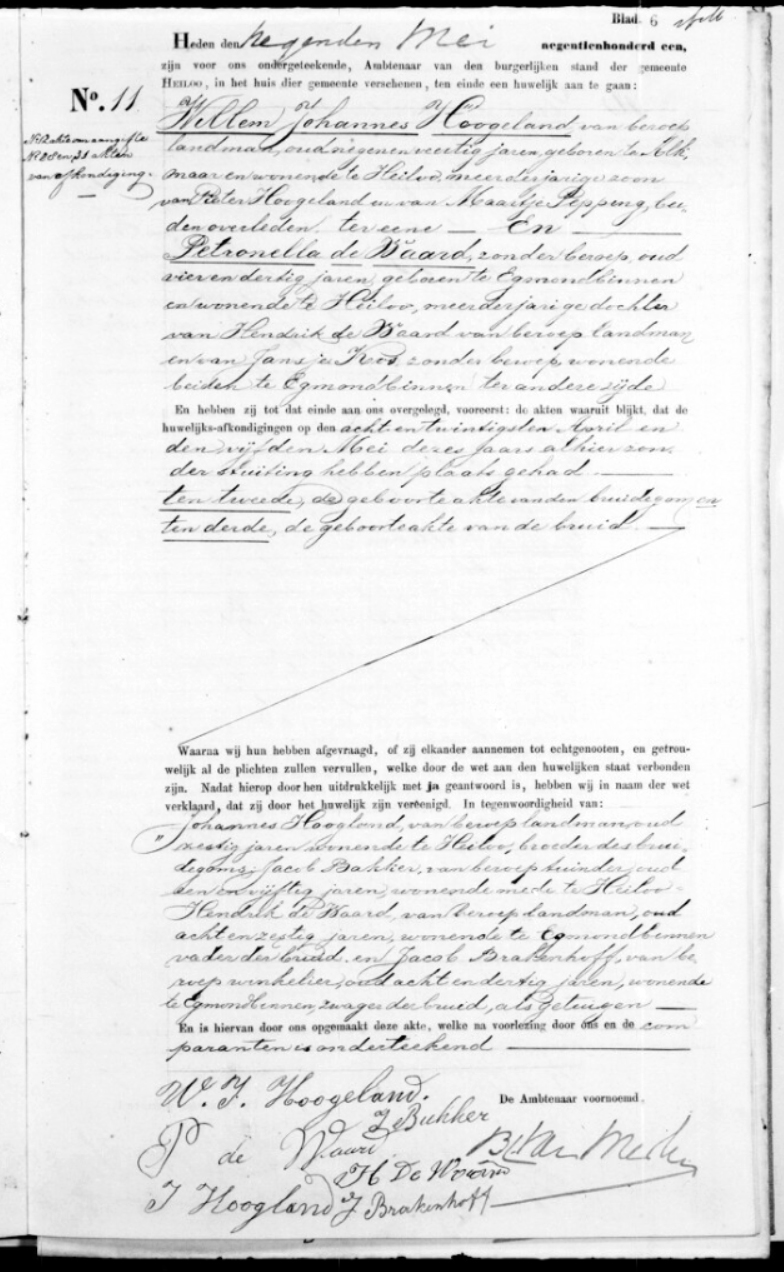 Blad. 6
Heden den negenden Mei negentienhonderd een,
zijn voor ons ondergeteekende, Ambtenaar van den burgerlijken stand der gemeente
HEILOO, in het huis dier gemeente verschenen, ten einde een huwelijk aan te gaan:
No. 11
Willem Johannes Hoogeland van beroep
landman, oud negenenveertig jaren, geboren te Alk,
maar en wonende te Heiloo, meerderjarige zoon
van Pieter Hoogeland en van Maartje Pepping, bei,
den overleden ter eene — En —
Petronella de Waard, zonder beroep, oud
vierendertig jaren, geboren te Egmondbinnen
en wonende te Heiloo, meerderjarige dochter
van Hendrik de Waard van beroep landman
en van Jansje Kos, zonder beroep, wonende
beiden te Egmondbinnen ter andere zijde
No 12 akte van aangifte
No 28 en 31 akten
van afkondiging.
En hebben zij tot dat einde aan ons overgelegd, vooreerst: de akten waaruit blijkt, dat de
huwelijks-afkondigingen op den acht en twintigsten April en
den vijfden Mei dezes jaars alhier zon,
der stuiting hebben plaats gehad. —
ten tweede, de geboorteakte van den bruidegom en
ten derde, de geboorteakte van de bruid. —
Waarna wij hun hebben afgevraagd, of zij elkander aannemen tot echtgenooten, en getrou-
welijk al de plichten zullen vervullen, welke door de wet aan den huwelijken staat verbonden
zijn. Nadat hierop door hen uitdrukkelijk met ja geantwoord is, hebben wij in naam der wet
verklaard, dat zij door het huwelijk zijn vereenigd. In tegenwoordigheid van:
Johannes Hoogland, van beroep landman, oud
zestig jaren wonende te Heiloo, broeder des brui,
degoms; Jacob Bakker, van beroep tuinder, oud
een en vijftig jaren, wonende mede te Heiloo-
Hendrik de Waard, van beroep landman, oud
acht en zestig jaren, wonende te Egmondbinnen
vader der bruid en Jacob Brakenhoff, van be,
roep winkelier, oud acht en dertig jaren, wonende
te Egmondbinnen, zwager der bruid, als getuigen —
En is hiervan door ons opgemaakt deze akte, welke na voorlezing door ons en de com
paranten is onderteekend —
W. J. Hoogeland.
De Ambtenaar voornoemd.
J Bakker
P de Waard
H De Waard
J Hoogland
J Brakenhoff